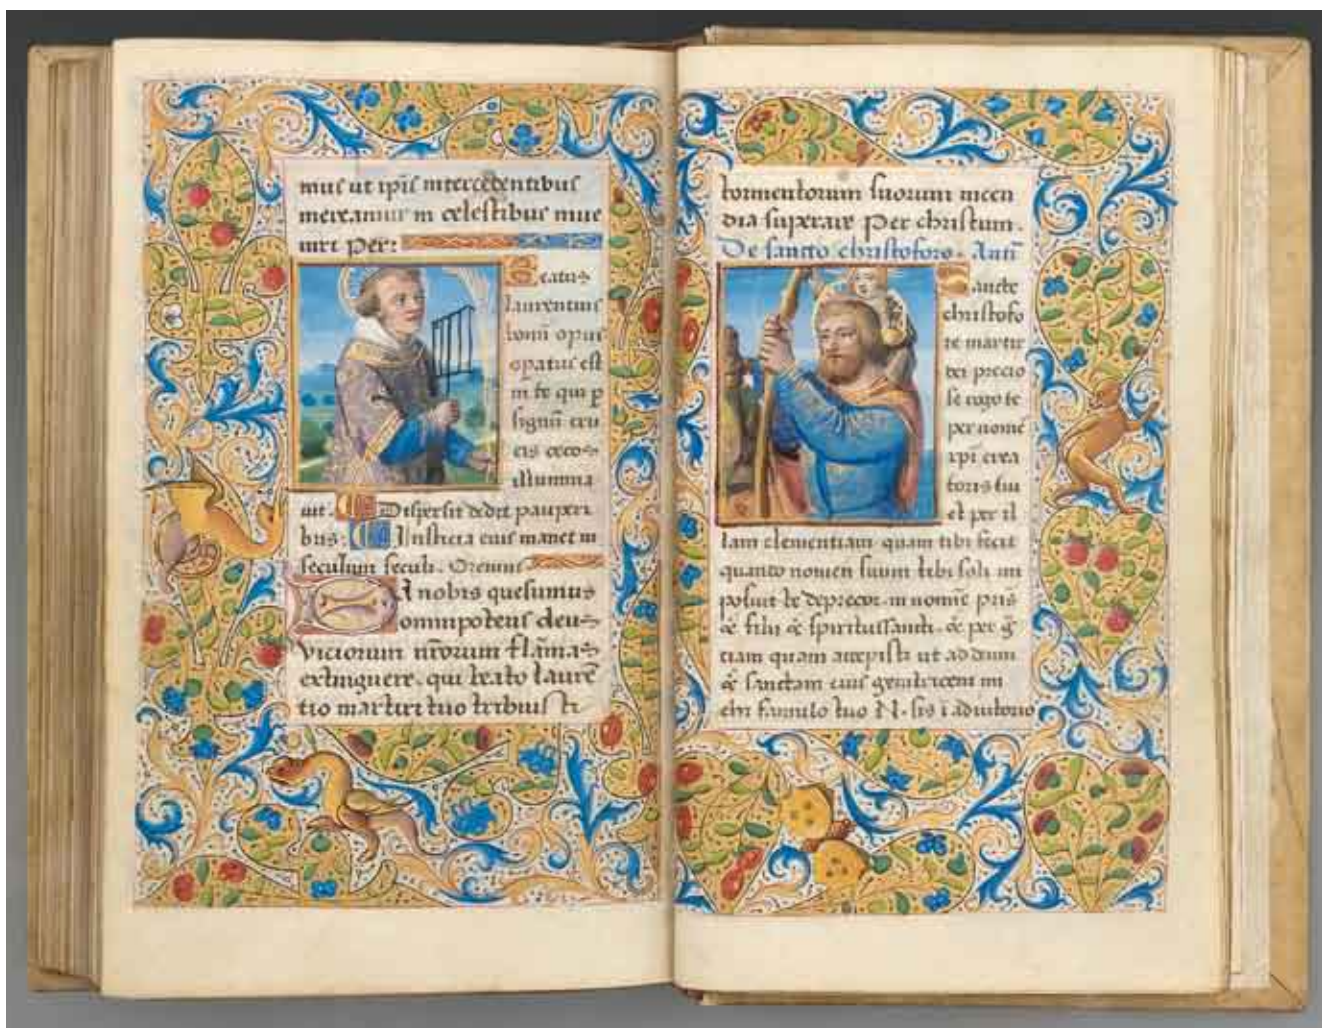 mus ut ip̄is intercedentibus
mereamur in celestibus mune
rari per:
Beatus
laurentius
bonū opus
opatus est
in te qui p
signū cru
cis cecos
illumina
uit. Dispersit dedit pauperi
bus: Iusticia eius manet in
seculum seculi. Oremus
DA nobis quesumus
omnipotens deus
viciorum nr̄orum flāmas
extinguere. qui beato laurē
tio martiri tuo tribuisti
tormentorum suorum incen
dia superare Per christum.
De sancto christoforo. Antī
Sancte
christofo
re martir
dei precio
se rogo te
per nomē
xpi crea
toris sui
et per il
lam clementiam quam tibi fecit
quando nomen suum tibi soli im
posuit te deprecor in nomīe pris
& filii & spiritussancti. & per gr̄
ciam quam accepisti ut ad deum
& sanctam eius genitricem mi
chi famulo tuo N. sis ī adiutorio